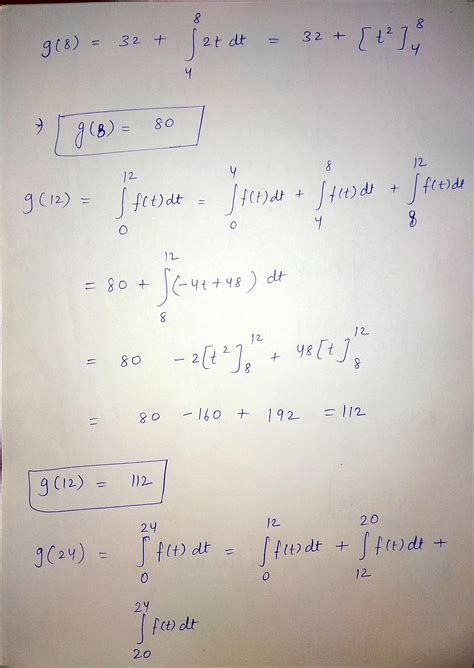 g(8) = 32 + ∫₄⁸ 2t dt = 32 + [t²]₄⁸
⇒ g(8) = 80
g(12) = ∫₀¹² f(t)dt = ∫₀⁴ f(t)dt + ∫₄⁸ f(t)dt + ∫₈¹² f(t)dt
= 80 + ∫₈¹² (-4t+48) dt
= 80 -2[t²]₈¹² + 48[t]₈¹²
= 80 -160 + 192 = 112
g(12) = 112
g(24) = ∫₀²⁴ f(t) dt = ∫₀¹² f(t)dt + ∫₁₂²⁰ f(t)dt +
∫₂₀²⁴ f(t)dt